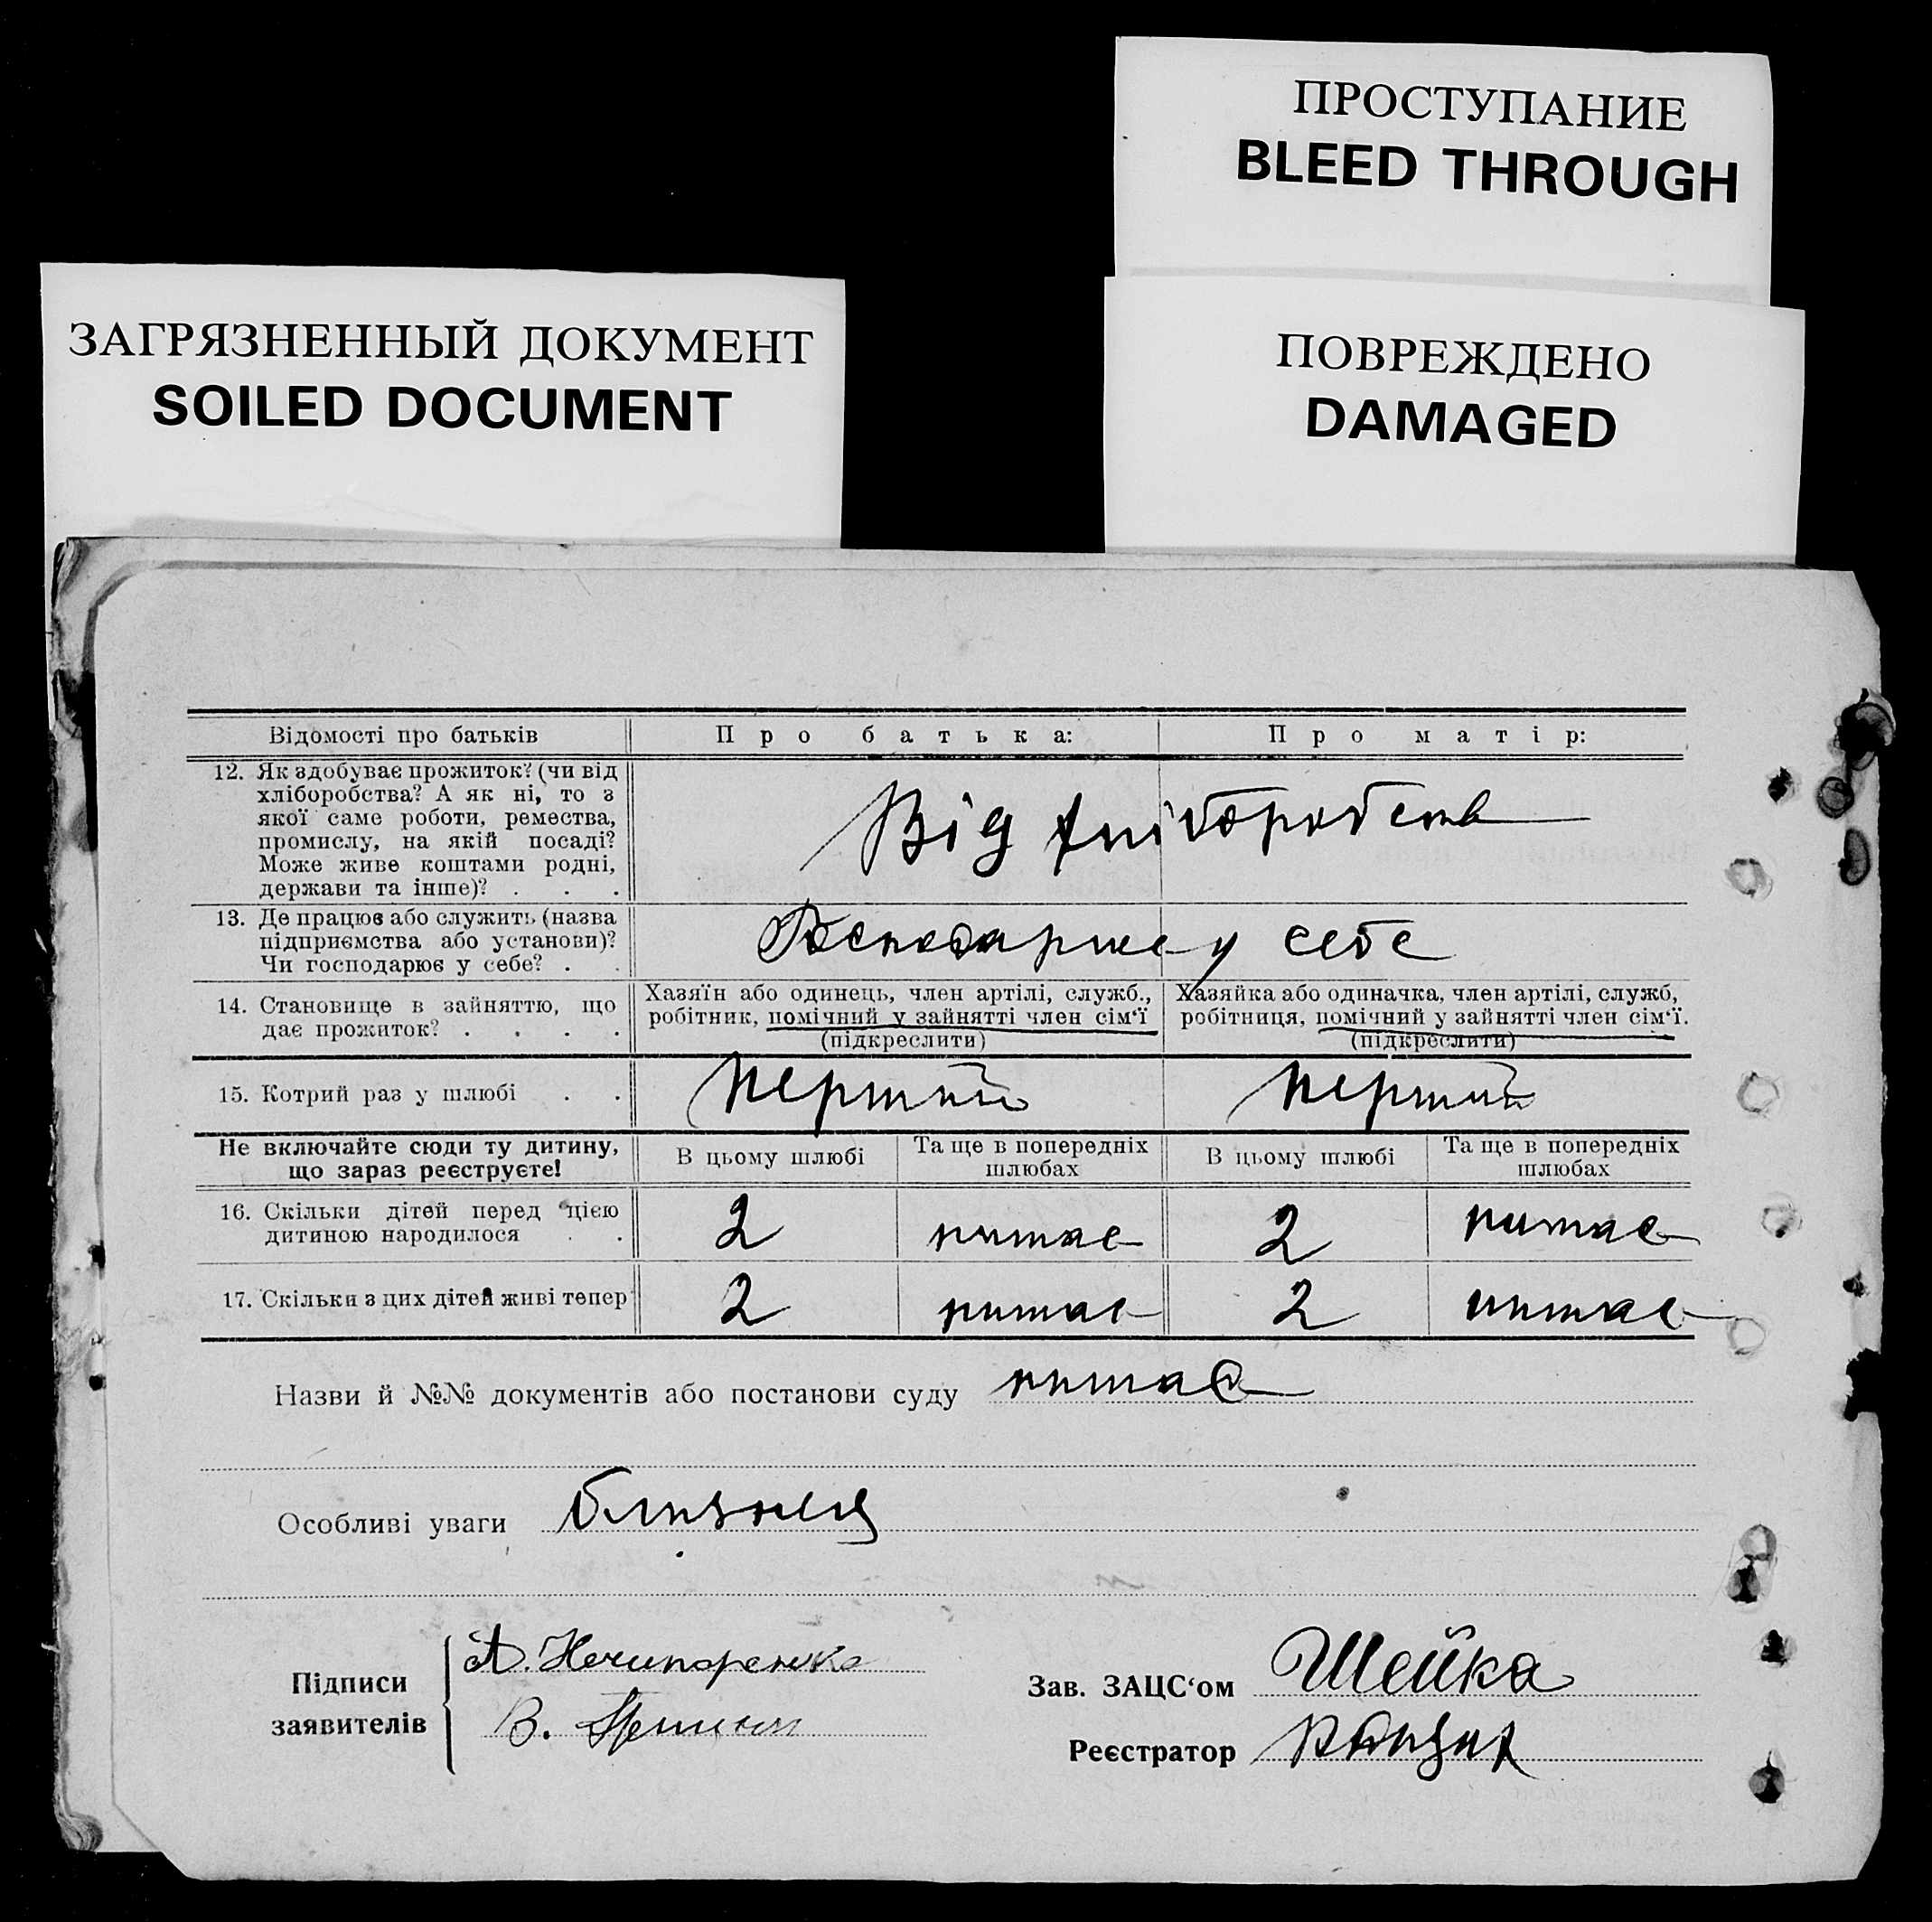 ПРОСТУПАНИЕ
BLEED THROUGH
ЗАГРЯЗНЕННЫЙ ДОКУМЕНТ
SOILED DOCUMENT
ПОВРЕЖДЕНО
DAMAGED
Відомості про батьків Про батька: Про матір:
12. Як здобуває прожиток? (чи від
хліборобства? А як ні, то з
якої саме роботи, ремества,
промислу, на якій посаді?
Може живе коштами родні,
держави та інше)? . . .
Від хліборобств
13. Де працює або служить (назва
підприємства або установи)?
Чи господарює у себе? . .
Господарює у себе
14. Становище в зайняттю, що
дає прожиток? . . . .
Хазяїн або одинець, член артілі, служб.,
робітник, помічний у зайнятті член сім'ї
(підкреслити)
Хазяйка або одиначка, член артілі, служб,
робітниця, помічний у зайнятті член сім'ї.
(підкреслити)
15. Котрий раз у шлюбі . . Перший Перший
Не включайте сюди ту дитину,
що зараз реєструєте!
В цьому шлюбі
Та ще в попередніх
шлюбах
В цьому шлюбі
Та ще в попередніх
шлюбах
16. Скільки дітей перед цією
дитиною народилося . .
2 нимає 2 нимає
17. Скільки з цих дітей живі тепер 2 нимає 2 нимає
Назви й №№ документів або постанови суду нимає
Особливі уваги близнец
Підписи
заявителів
А. Нечипоренко
В.
Зав. ЗАЦС'ом Шейка
Реєстратор